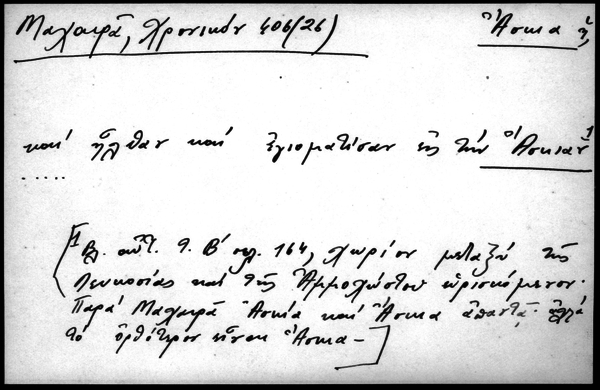 Μαχαιρᾶ, Χρονικόν 406(26) Ἄσκια ἡ,
καί ἦλθαν καί ἐγιοματίσαν εἰς τήν Ἄσκιαν¹
.....
[¹ βλ. αὐτ. τ. Β' σελ. 164, χωρίον μεταξύ τῆς
Λευκοσίας καί τῆς Ἀμμοχώστου εὑρισκόμενον.
Παρά Μαχαιρᾶ Ἀσκία καί Ἄσκια ἀπαντᾷ· ἀλλά
τό ὀρθότερον εἶναι Ἄσκια -]